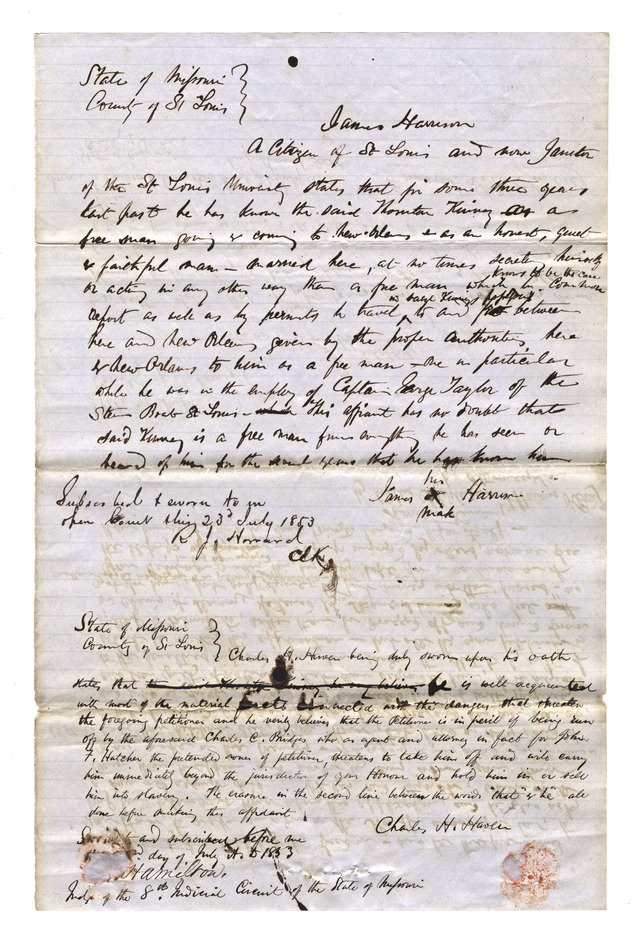 State of Missouri
County of St Louis
James Harrison
A Citizen of St Louis and now Janitor
of the St Louis University states that for some three years
last past he has known the said Thornton Kinney as a
free man going & coming to New-Orleans & as an honest, quiet
& faithful man – married here, at no times secrete himself
knows to be the case
or acting in any other way than a free man which is Common
in said Kinneys
report as well as by permits to travel to and fro between
here and New Orleans given by the proper authorities here
& New Orleans to him as a free man – One in particular
while he was in the employ of Captain George Taylor of the
Steam Boat St Louis – This affiant has no doubt that
said Kinney is a free man from everything he has seen or
heard of him for the several years that he has known him
his
James X Harrison
mark
Subscribed & sworn to in
open Court this 23d July 1853
Clk
State of Missouri
County of St Louis
Charles H. Haven being duly sworn upon his oath
states that he is well acquainted
with most of the material facts connected with the dangers that threaten
the foregoing petitioner and he verily believes that the Petitioner is in peril of being run
off by the aforesaid Charles C. Bridges who as agent and attorney in fact for John
F. Hatcher the pretended owner of petitioner threatens to take him off and will carry
him immediately beyond the jurisdiction of your Honour and hold him in or sell
him into slavery. The erasure in the second line between the words "that" & "he" all
done before making this affidavit.
Charles H. Haven
and subscribed before me
day of July A.D. 1853
Hamilton.
Judge of the 8th Judicial Circuit of the State of Missouri